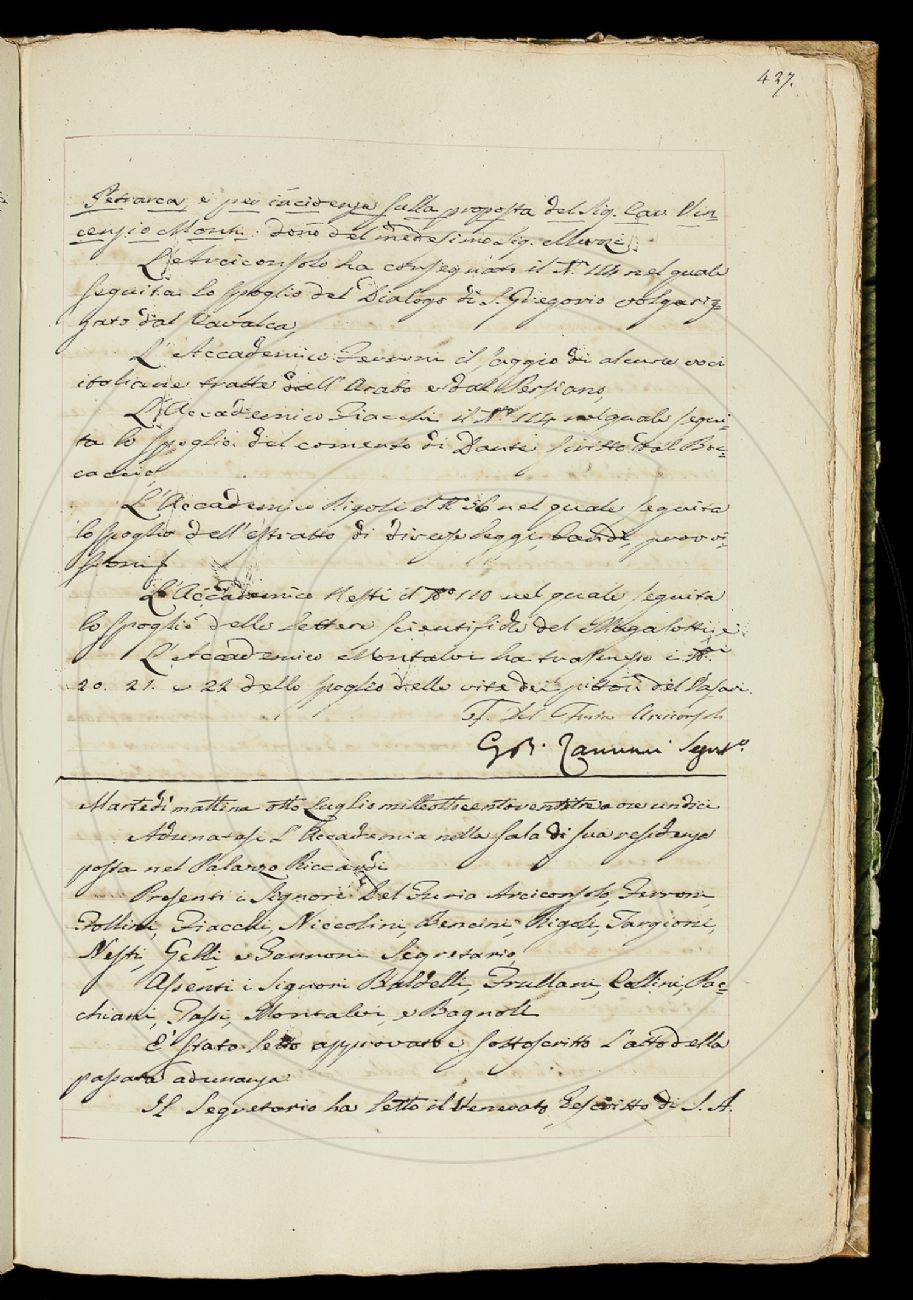 427.
Petrarca, e per incidenza sulla proposta del Sig. Cav. Vin
cenzio Monti: dono del medesimo Sig. Muzzi.
L'Arciconsolo ha consegnato il N.° 114 nel quale
seguita lo spoglio del Dialogo di S. Gregorio volgariz-
zato dal Cavalca,
L'Accademico Ferroni il saggio di alcune voci
italiane tratte dall'Arabo e dal Persiano,
L'Accademico Fiacchi il N.° 114 nel quale segui-
ta lo spoglio del comento di Dante scritto dal Boc-
caccio,
L'Accademico Rigoli il N.° 36 nel quale seguita
lo spoglio dell'estratto di diverse leggi, bandi, provvi-
sioni &
L'Accademico Nesti il N.° 110 nel quale seguita
lo spoglio delle lettere scientifiche del Magalotti; e
L'Accademico Montalvi ha trasmesso i N.i
20. 21. e 22 dello spoglio delle vite dei pittori del Vasari.
F. Del Furia Arciconsolo
G.B. Zannoni Segret.°
Martedì mattina otto Luglio milleottocentoventitre a ore undici
Adunatasi l'Accademia nella sala di sua residenza
posta nel Palazzo Riccardi
Presenti i Signori Del Furia Arciconsolo, Ferroni,
Follini, Fiacchi, Niccolini, Bencini, Rigoli, Targioni,
Nesti, Gelli e Zannoni Segretario,
Assenti i Signori Baldelli, Frullani, Collini, Pac-
chiani, Tassi, Montalvi, e Bagnoli
È stato letto approvato e sottoscritto l'atto della
passata adunanza
Il Segretario ha letto il Venerato Rescritto di S. A.